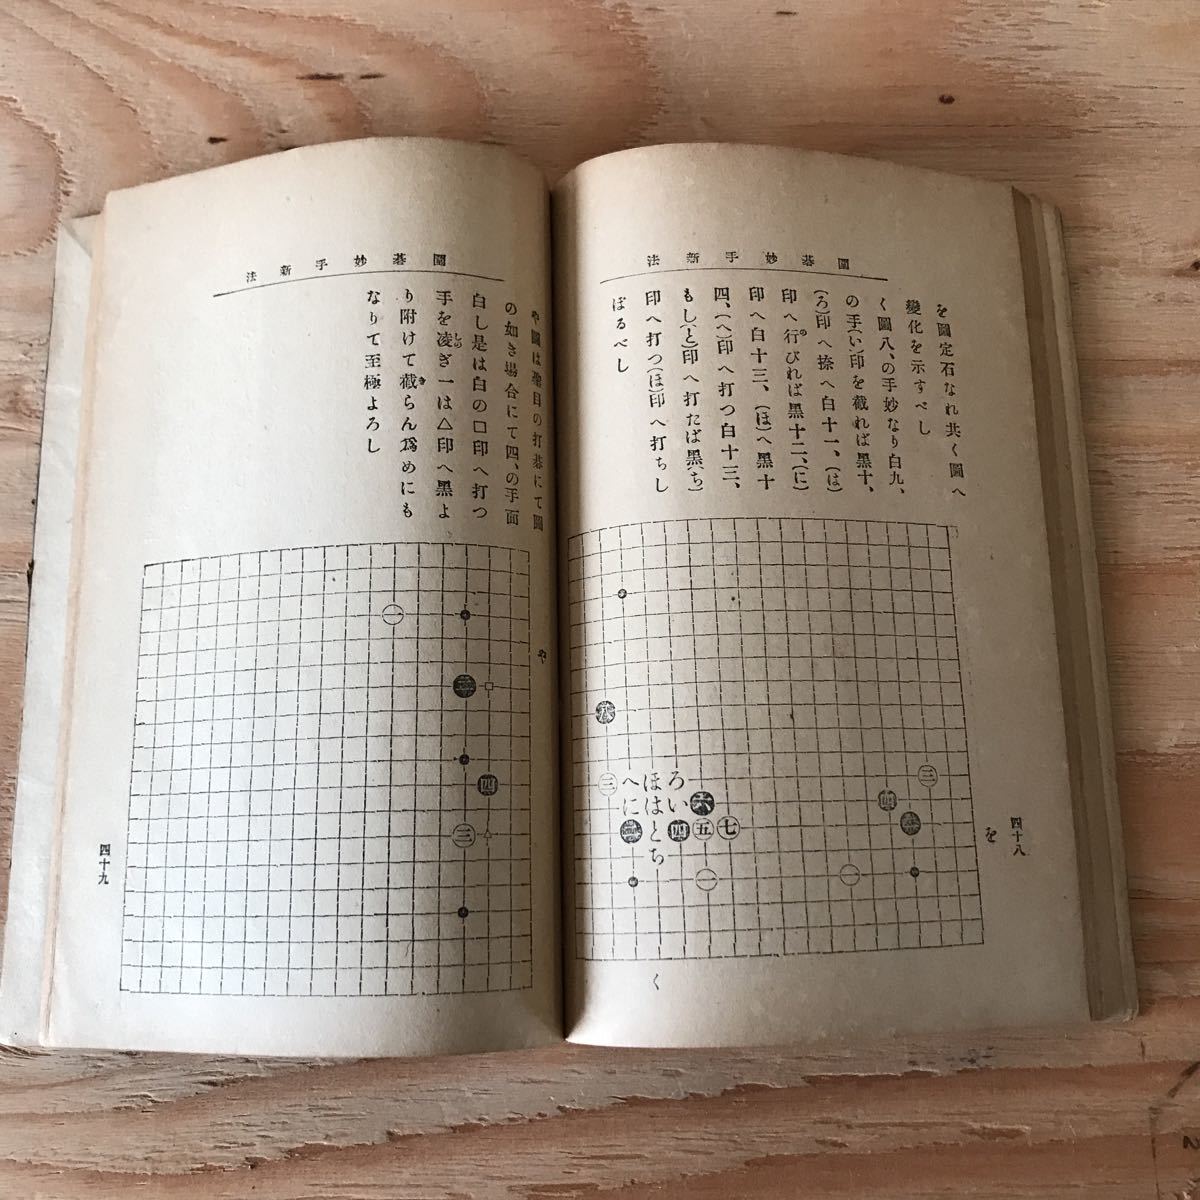 圍碁妙手新法
を圖定石なれ共く圖へ
變化を示すべし
く圖八、の手妙なり白九、
の手(い)印を截れば黑十、
(ろ)印へ捺へ白十一、(は)
印へ行びれば黑十二、(に)
印へ白十三、(ほ)へ黑十
四、(へ)印へ打つ白十三、
もし(と)印へ打たば黑(ち)
印へ打つ(ほ)印へ打ちし
ぼるべし
八
三
ろい六
ほはとち
へに二四五七
一
三
四
二
一
を
く
四十八
圍碁妙手新法
や圖は聖目の打碁にて圖
の如き場合にて四、の手面
白し是は白の□印へ打つ
手を凌ぎ一は△印へ黑よ
り附けて截らん爲めにも
なりて至極よろし
しの
き
や
一
二□
四
三△
四十九